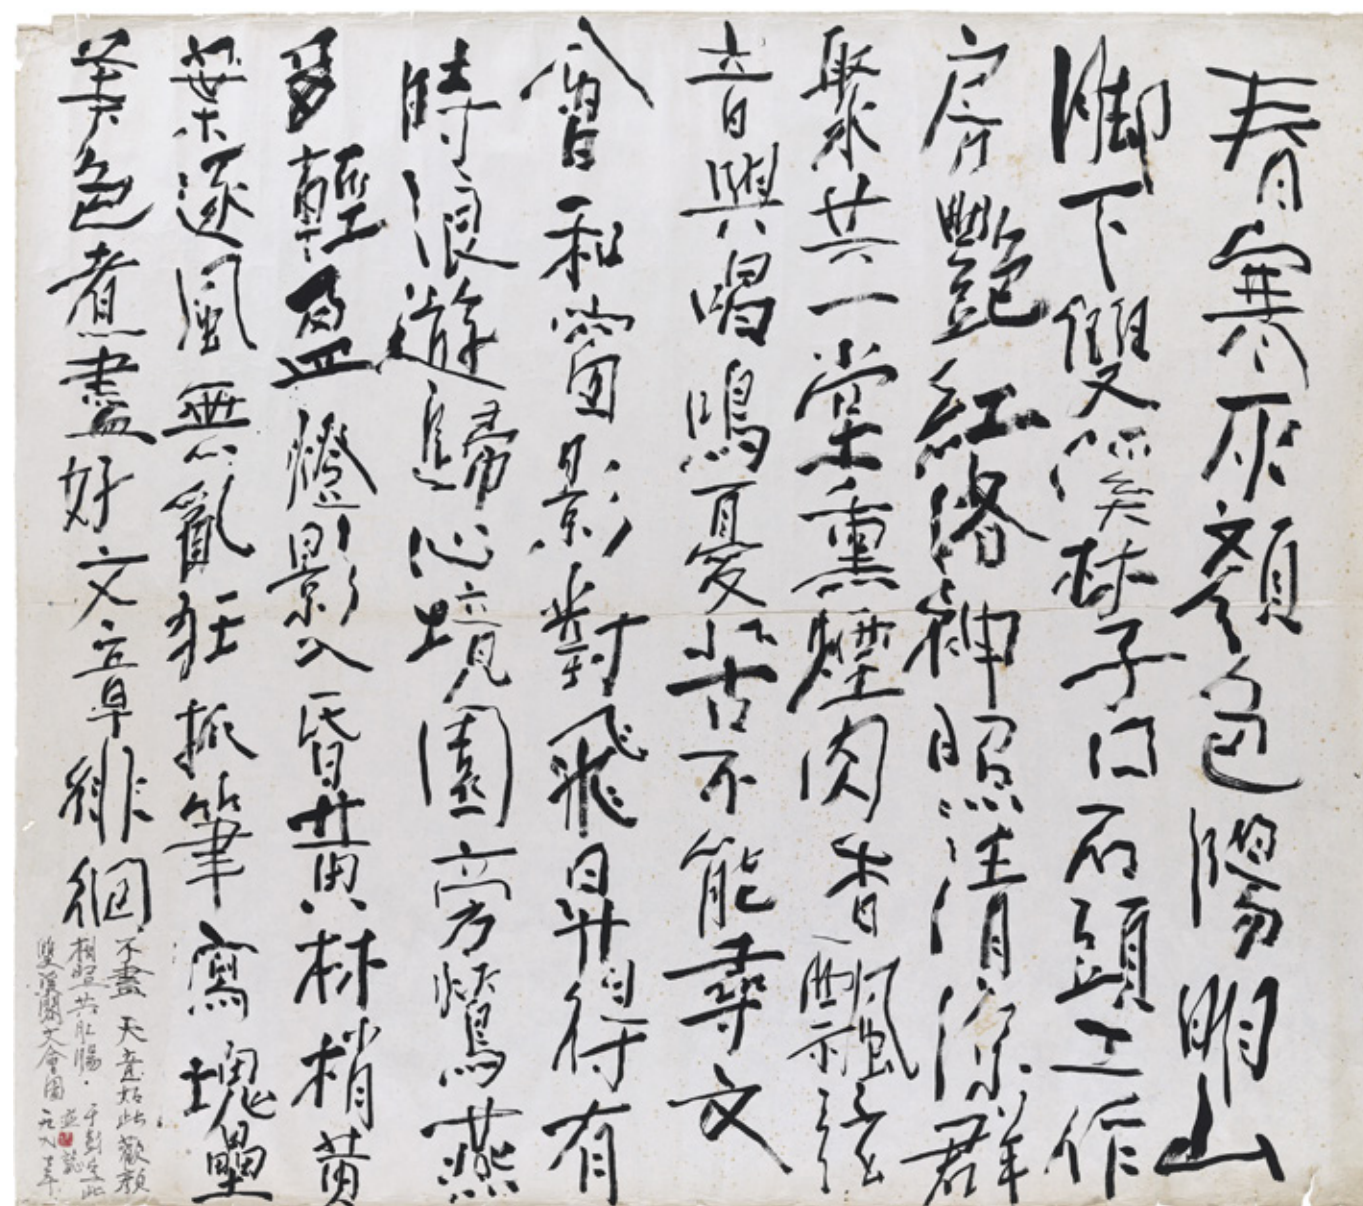 春寒灰顏色陽明山
脚下雙溪林子口石頭工作
房艷紅洛神照清涼群
聚共一堂熏煙肉香飄弦
音與唱鳴憂苦不能尋文
會和窗影對飛昇得有
時浪遊追歸心境園旁鶯燕
多輕盈燈影入昏黃林梢黃
葉逐風無亂狂抓筆寫塊壘
美色煮畫好文章徘徊
不盡天意如此歡顏
相照共肚腸·于彭坐此
雙溪開文會圖並誌